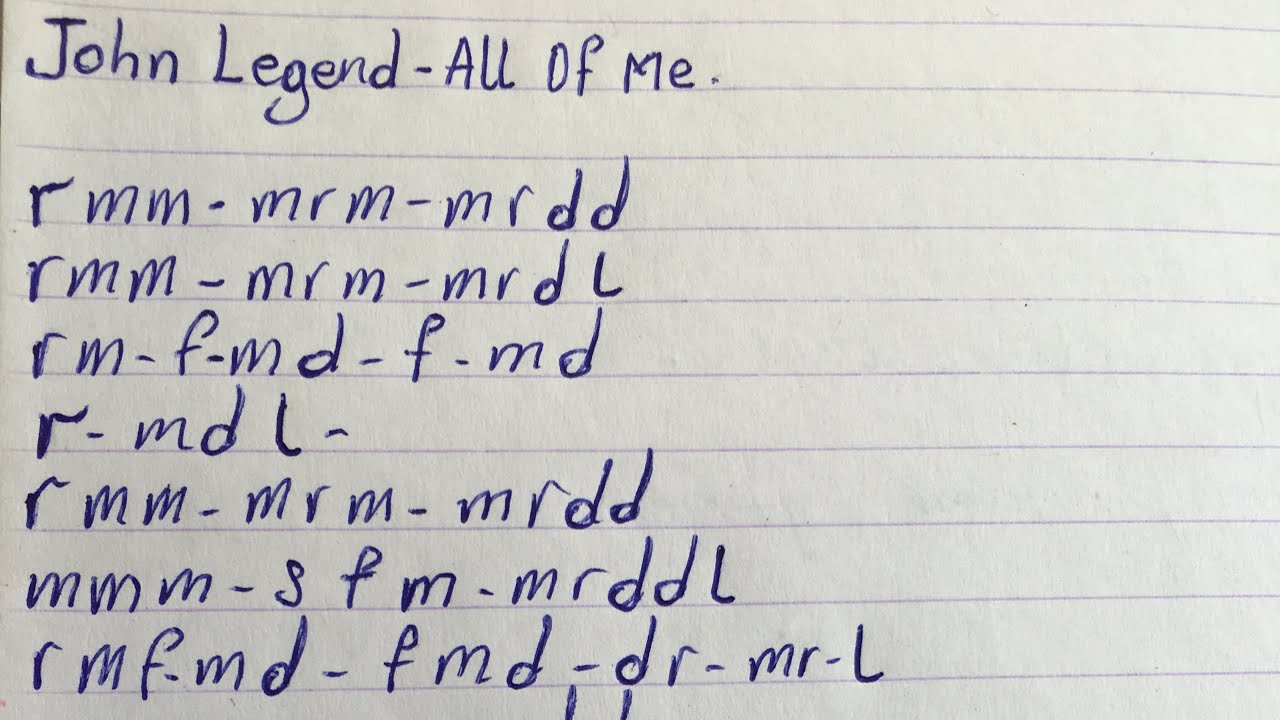 John Legend - All Of Me.
rmm - mrm - mrdd
rmm - mrm - mrdl
rm - f - md - f - md
r - mdl -
rmm - mrm - mrdd
mmm - s f m - mrddl
rmf - md - fmd - dr - mr - l